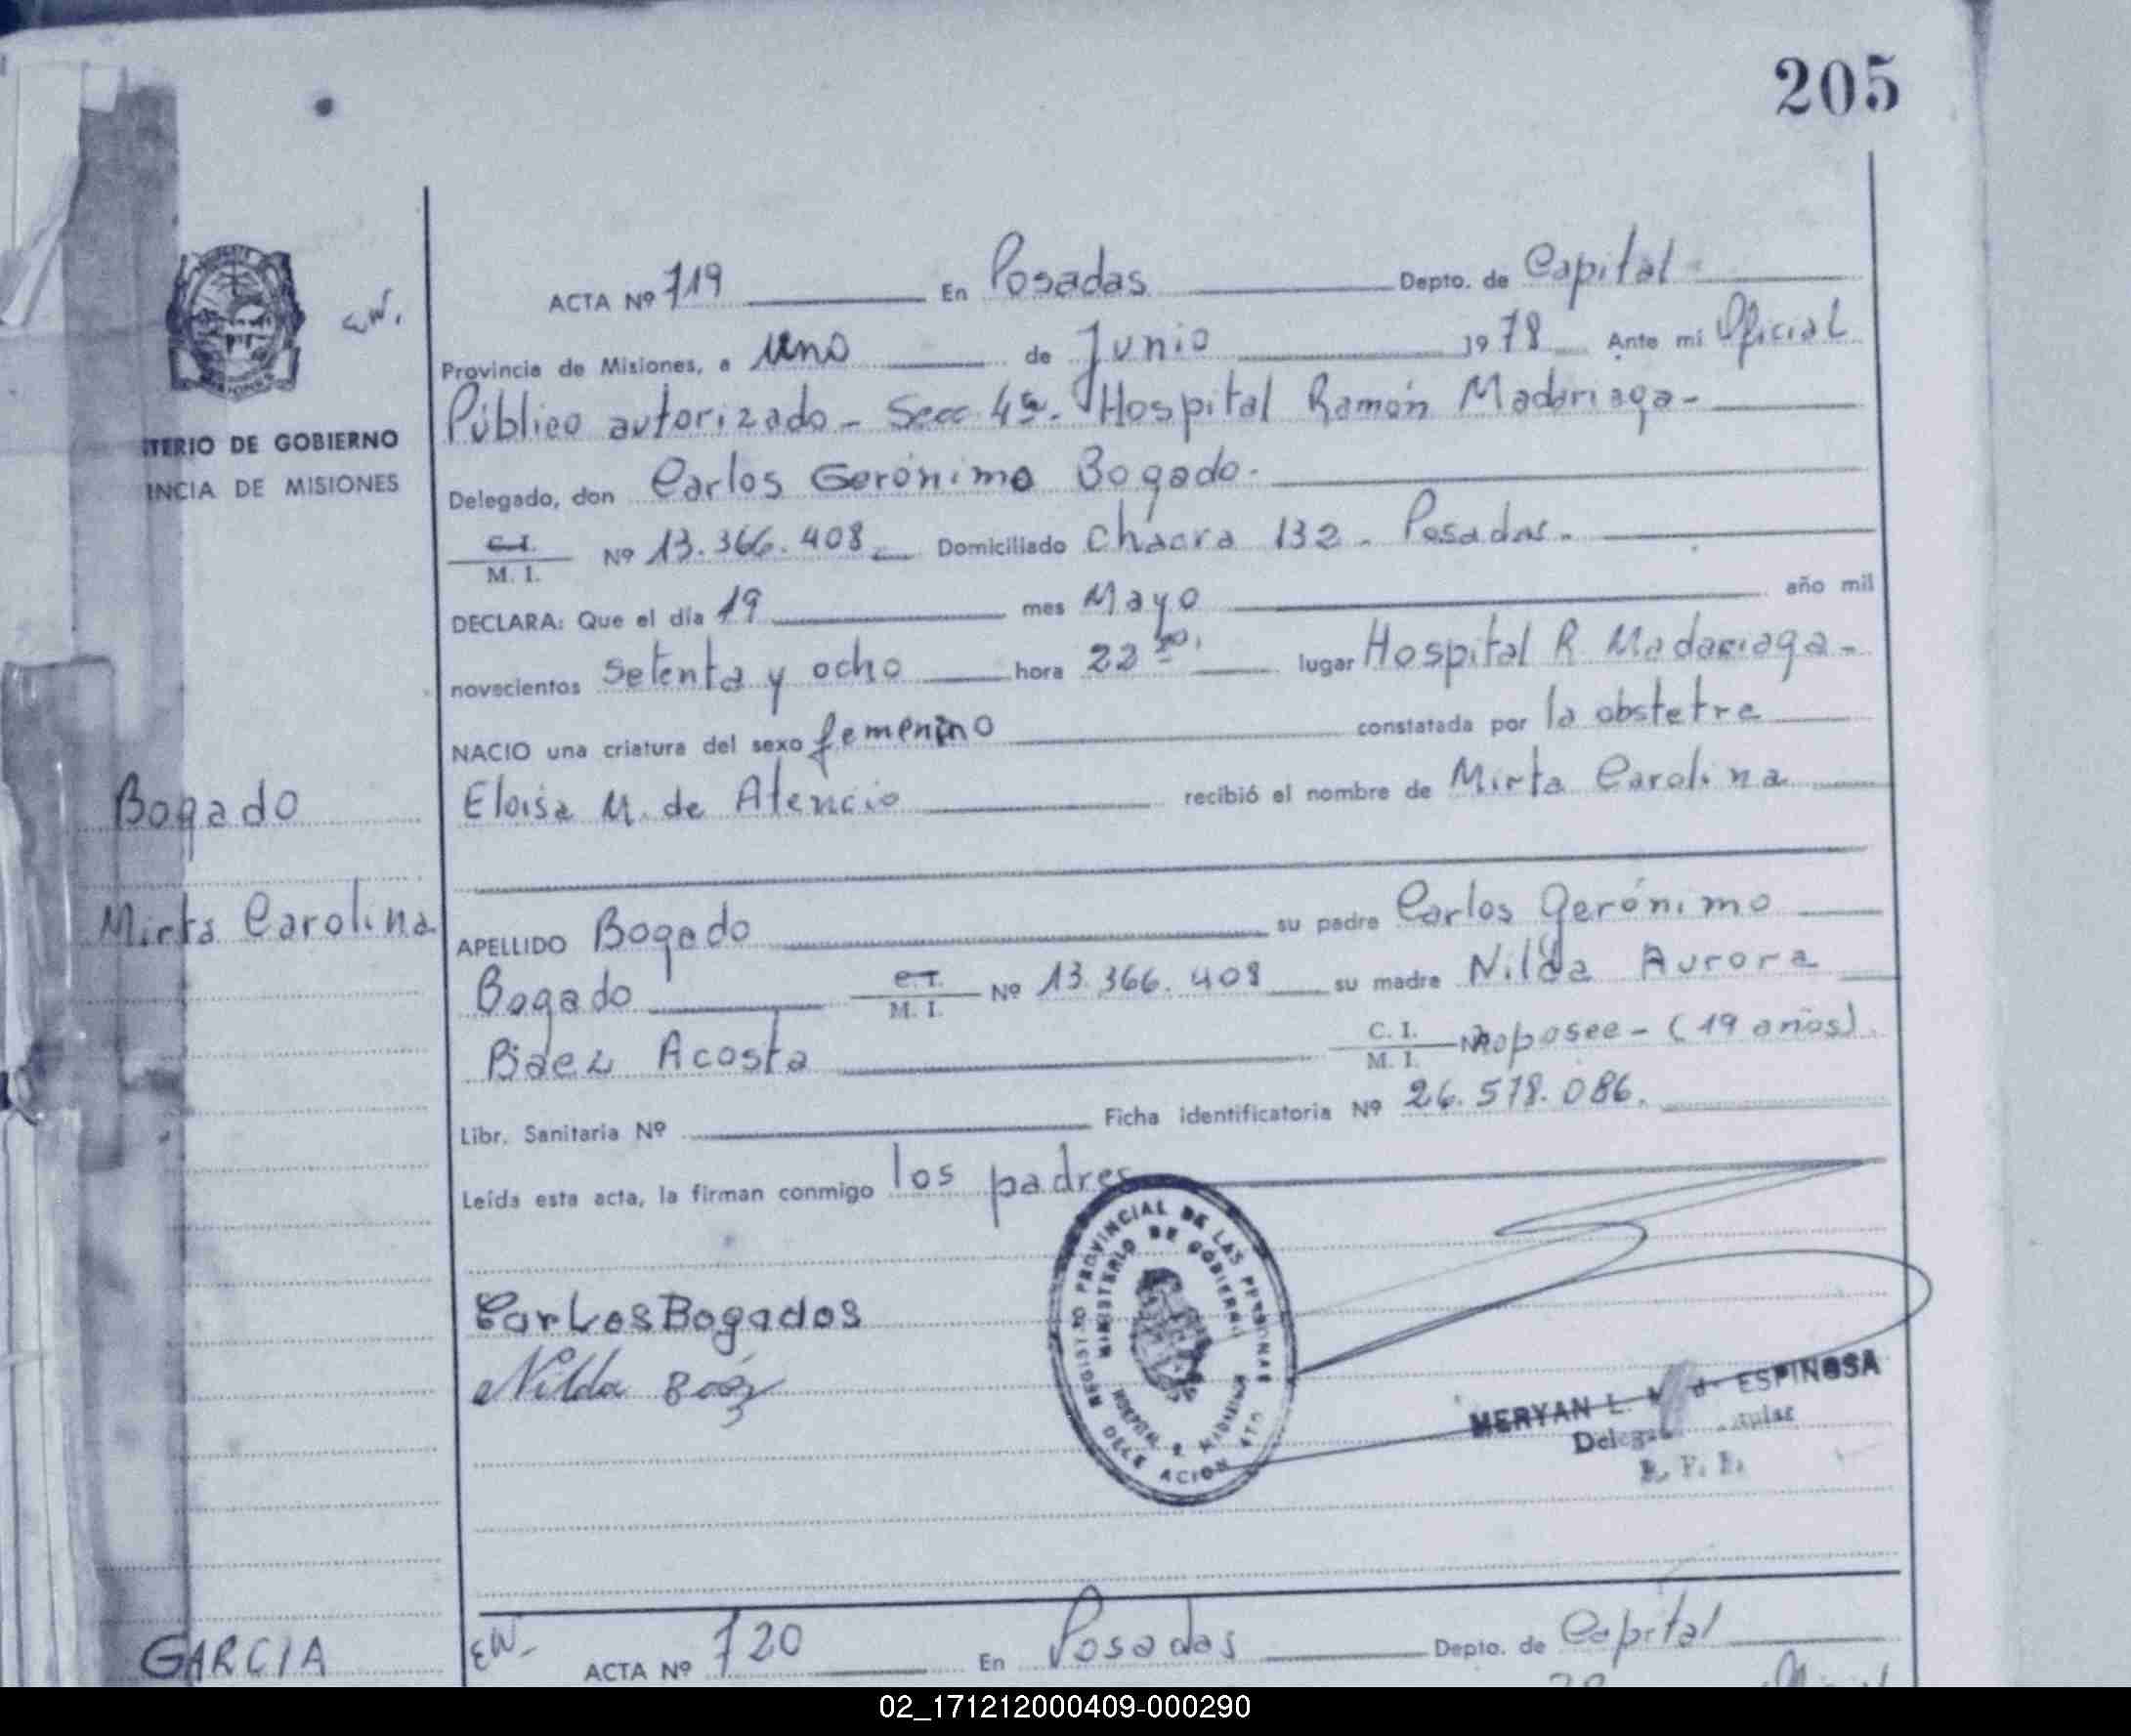 205
EW.
ACTA Nº 719 En Posadas Depto. de Capital
Provincia de Misiones, a uno de Junio 1978 Ante mi Oficial
Público autorizado - Secc 4ta. Hospital Ramón Madariaga -
TERIO DE GOBIERNO
INCIA DE MISIONES
Delegado, don Carlos Gerónimo Bogado.
C. I.
M. I. Nº 13.366.408 Domiciliado Chacra 132 - Posadas.
DECLARA: Que el día 19 mes Mayo año mil
novecientos setenta y ocho hora 22 lugar Hospital R. Madariaga -
NACIO una criatura del sexo femenino constatada por la obstetre
Eloisa M. de Atencio recibió el nombre de Mirta Carolina
Bogado
Mirta Carolina
APELLIDO Bogado su padre Carlos Gerónimo
Bogado C. I. M. I. Nº 13.366.408 su madre Nilda Aurora
Báez Acosta C. I. M. I. No posee - (19 años).
Libr. Sanitaria Nº Ficha identificatoria Nº 26.578.086.
Leída esta acta, la firman conmigo los padres
REGISTRO PROVINCIAL DE LAS PERSONAS
MINISTERIO DE GOBIERNO
HOSPITAL R. MADARIAGA
DELEGACION
Carlos Bogados
Nilda Báez
MERYAN L. de ESPINOSA
GARCIA
EW-
ACTA Nº 720 En Posadas Depto. de Capital
02_171212000409-000290